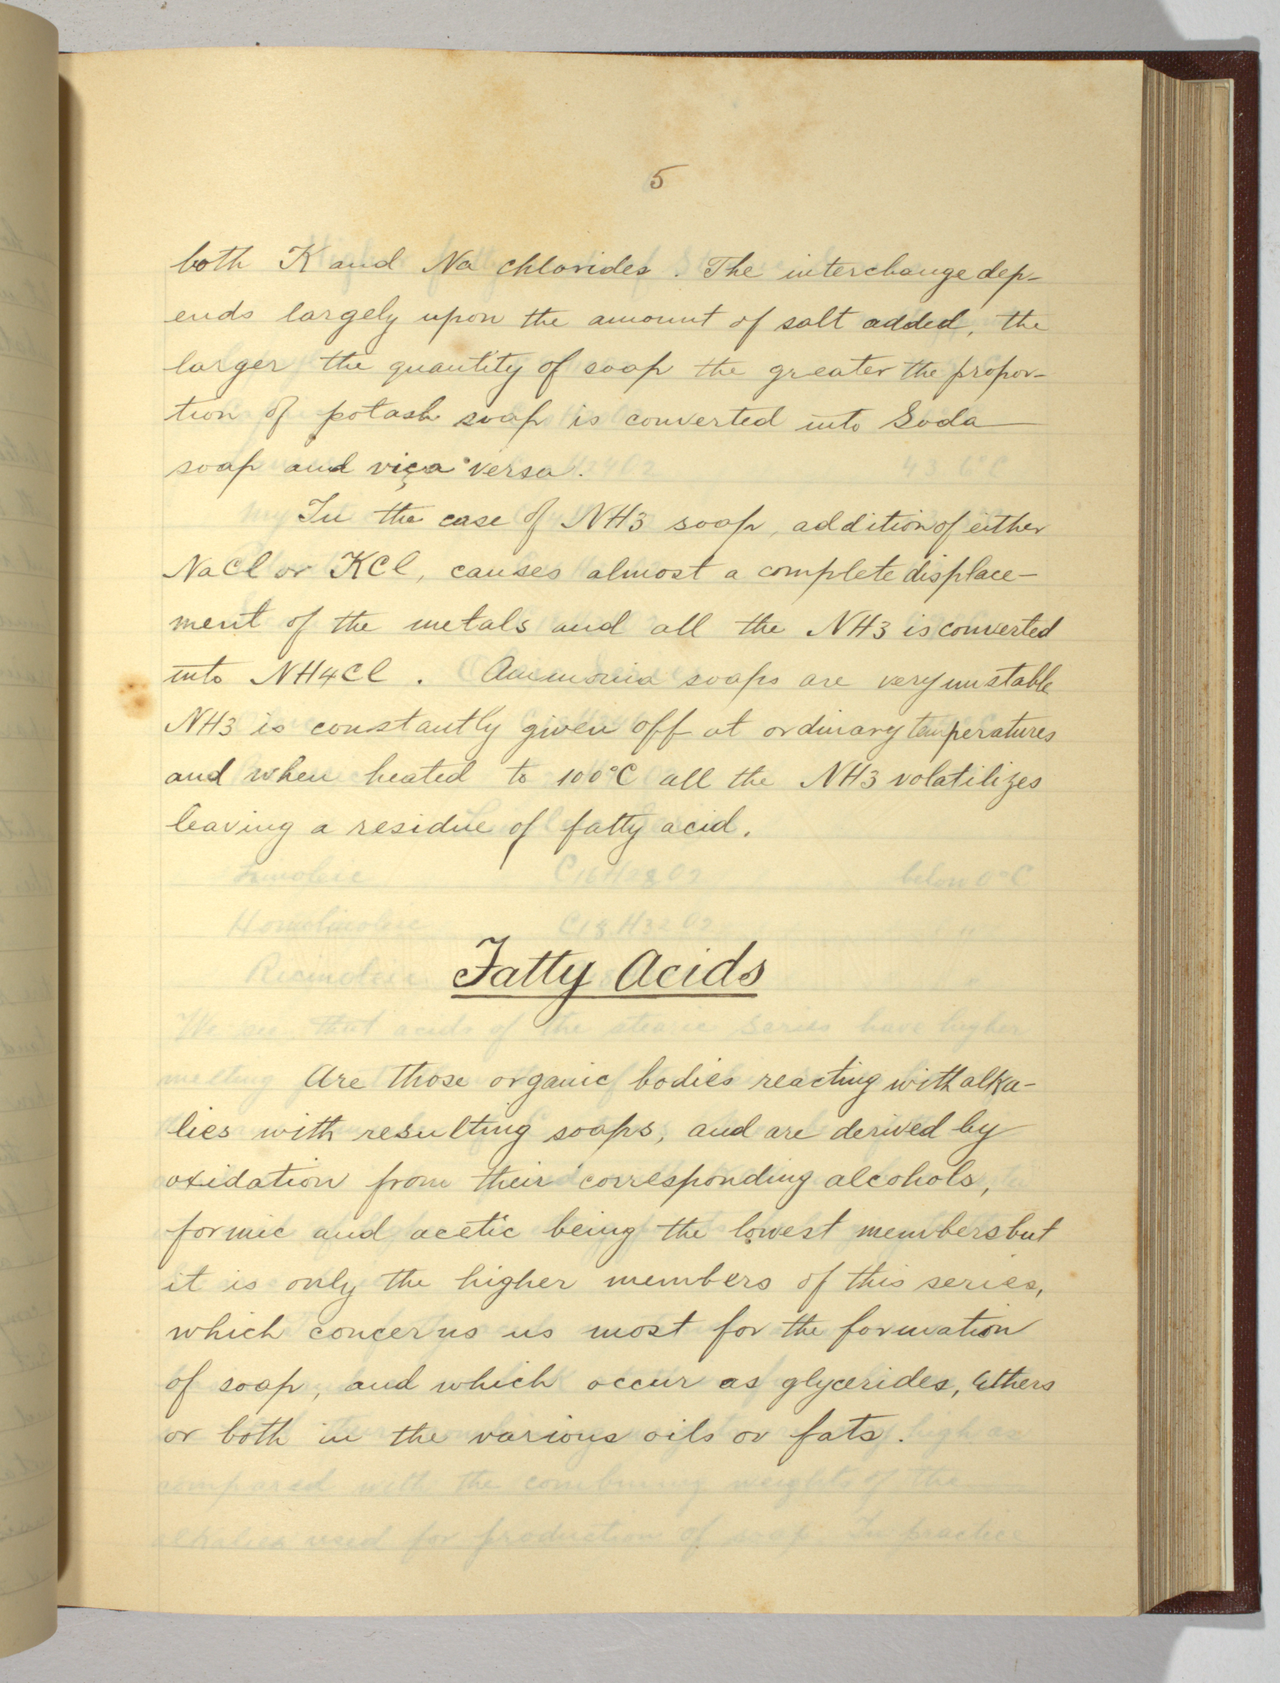 5
both K and Na chlorides. The interchange dep-
ends largely upon the amount of salt added, the
larger the quantity of soap the greater the propor-
tion of potash soap is converted into Soda
soap and viça versa.
In the case of NH3 soap, addition of either
NaCl or KCl, causes almost a complete displace-
ment of the metals and all the NH3 is converted
into NH4Cl. Ammonia soaps are very unstable
NH3 is constantly given off at ordinary temperatures
and when heated to 100°C all the NH3 volatilizes
leaving a residue of fatty acid.
Fatty Acids
Are those organic bodies reacting with alka-
lies with resulting soaps, and are derived by
oxidation from their corresponding alcohols,
formic and acetic being the lowest members but
it is only the higher members of this series,
which concerns us most for the formation
of soap, and which occur as glycerides, Ethers
or both in the various oils or fats.